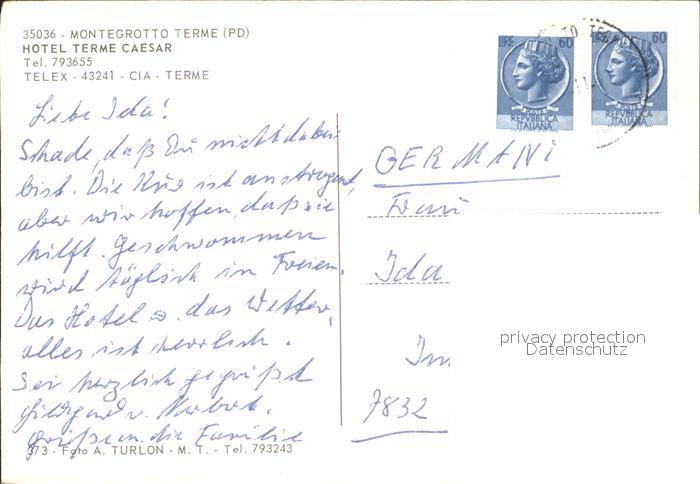 35036 - MONTEGROTTO TERME (PD)
HOTEL TERME CAESAR
Tel. 793655
TELEX - 43241 - CIA - TERME
LIRE 60
POSTE
REPVBBLICA
ITALIANA
LIRE 60
POSTE
REPVBBLICA
ITALIANA
Liebe Ida!
Schade, daß Du nicht dabei
bist. Die Kur ist anstrengend,
aber wir hoffen, daß sie
hilft. Geschwommen
wird täglich im Freien.
Das Hotel u. das Wetter,
alles ist herrlich.
Sei herzlich gegrüßt
Hildegard u. Norbert.
grüße an die Familie
373 - Foto A. TURLON - M. T. - Tel. 793243
GERMANI
Frau
Ida
Im
7832
privacy protection
Datenschutz